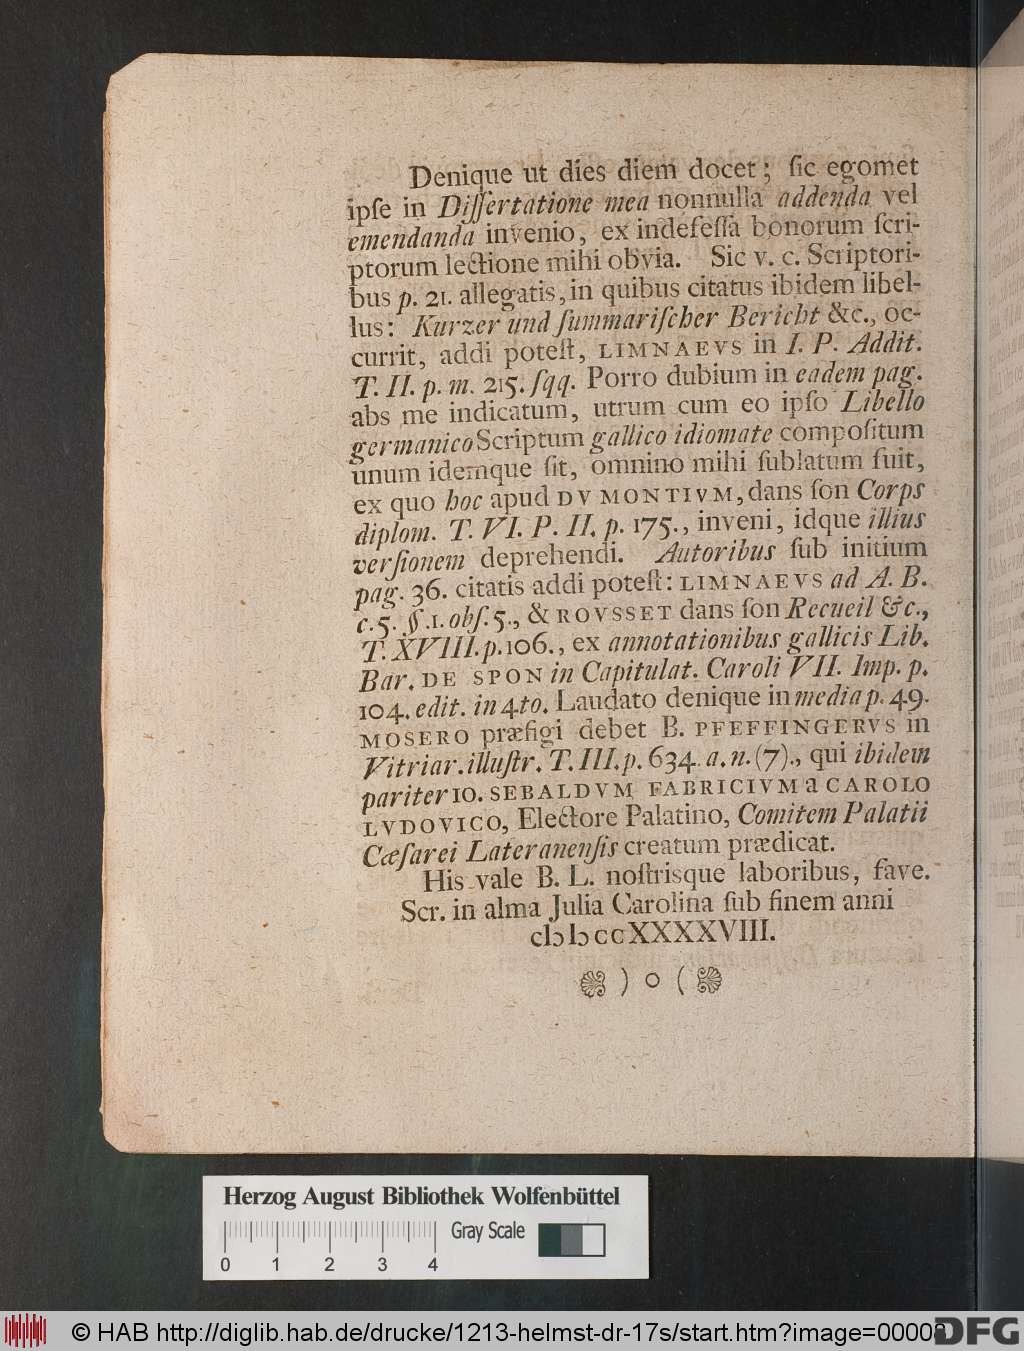 Denique ut dies diem docet; ſic egomet
ipſe in Diſſertatione mea nonnulla addenda vel
emendanda invenio, ex indefeſſa bonorum ſcri-
ptorum lectione mihi obvia. Sic v. c. Scriptori-
bus p. 21. allegatis, in quibus citatus ibidem libel-
lus: Kurzer und ſummariſcher Bericht &c., oc-
currit, addi poteſt, LIMNAEVS in I. P. Addit.
T. II. p. m. 215. ſqq. Porro dubium in eadem pag.
abs me indicatum, utrum cum eo ipſo Libello
germanico Scriptum gallico idiomate compoſitum
unum idemque ſit, omnino mihi ſublatum fuit,
ex quo hoc apud DV MONTIVM, dans ſon Corps
diplom. T. VI. P. II. p. 175., inveni, idque illius
verſionem deprehendi. Autoribus ſub initium
pag. 36. citatis addi poteſt: LIMNAEVS ad A. B.
c. 5. §. 1. obſ. 5., & ROVSSET dans ſon Recueil &c.,
T. XVIII. p. 106., ex annotationibus gallicis Lib.
Bar. DE SPON in Capitulat. Caroli VII. Imp. p.
104. edit. in 4to. Laudato denique in media p. 49.
MOSERO præfigi debet B. PFEFFINGERVS in
Vitriar. illuſtr. T. III. p. 634. a. n. (7)., qui ibidem
pariter IO. SEBALDVM FABRICIVM a CAROLO
LVDOVICO, Electore Palatino, Comitem Palatii
Cæſarei Lateranenſis creatum prædicat.
His vale B. L. noſtrisque laboribus, fave.
Scr. in alma Julia Carolina ſub finem anni
cIↄ Iↄ ccXXXXVIII.
) o (
Herzog August Bibliothek Wolfenbüttel
Gray Scale
0 1 2 3 4
© HAB http://diglib.hab.de/drucke/1213-helmst-dr-17s/start.htm?image=00008
DFG